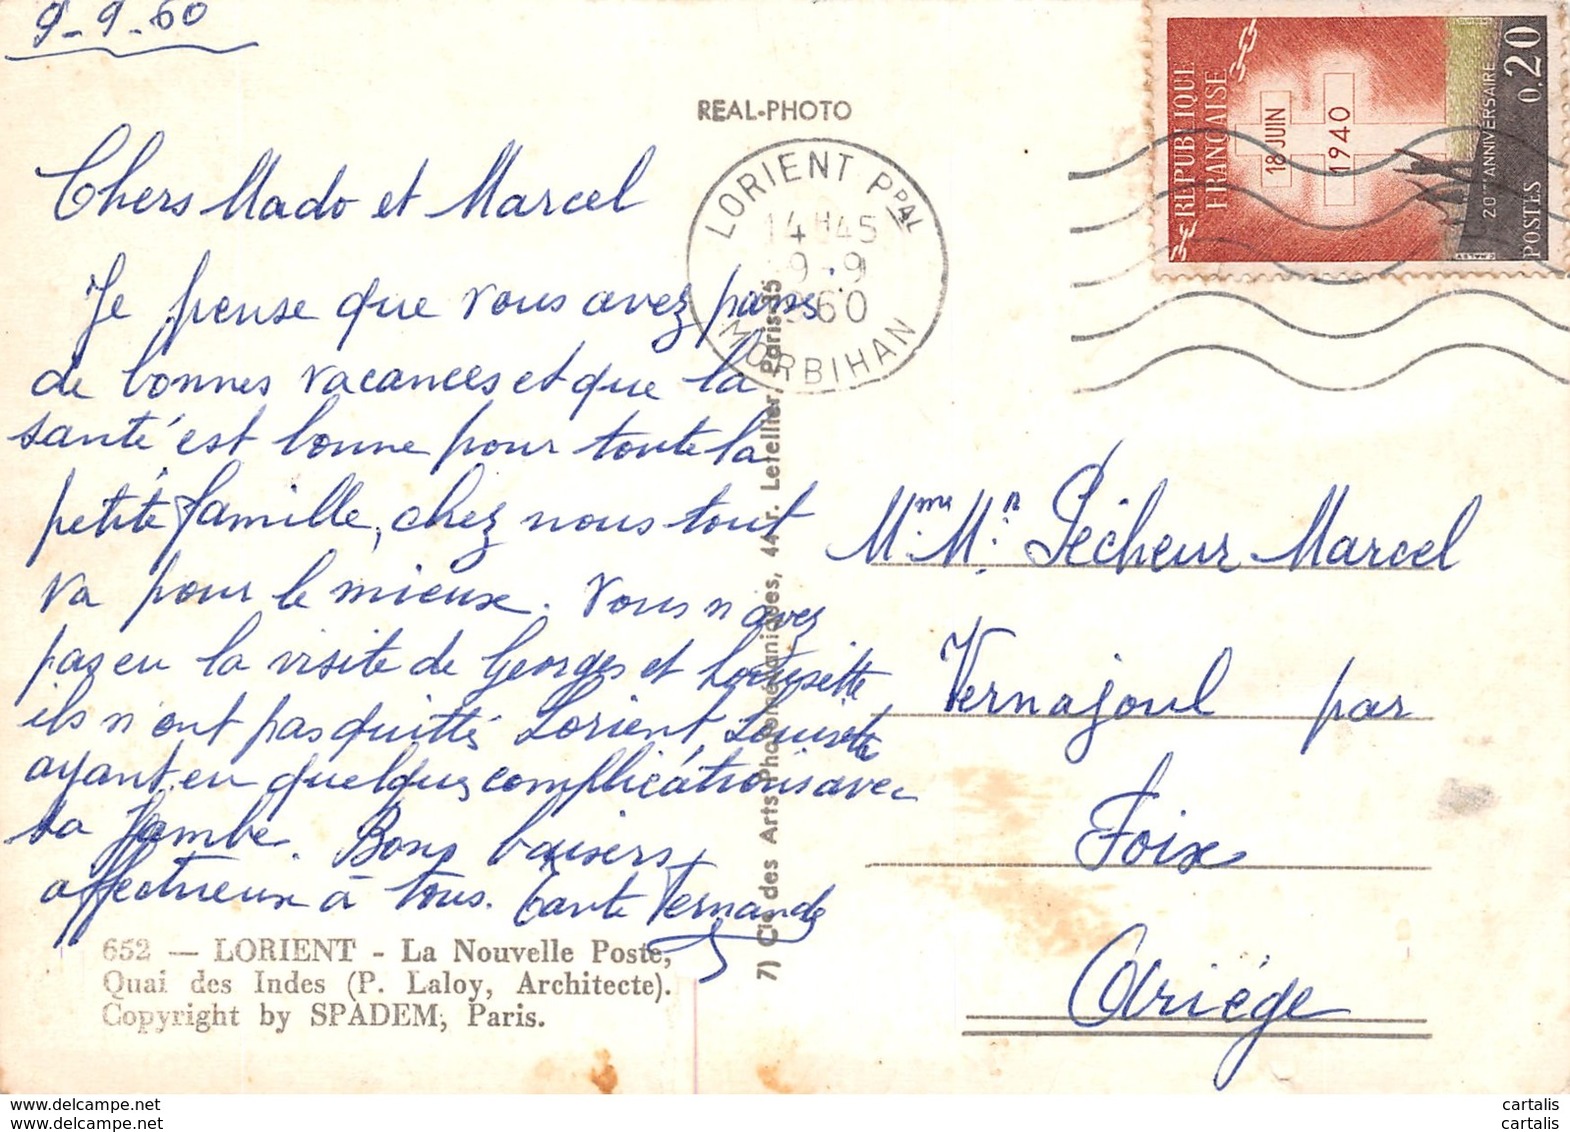 9-9-60
REAL-PHOTO
RÉPUBLIQUE
FRANÇAISE
18 JUIN
1940
20me ANNIVERSAIRE
POSTES 0,20
LORIENT PPAL
14H45
9-9
1960
MORBIHAN
Chers Mado et Marcel
Je pense que vous avez passé
de bonnes vacances et que la
santé est bonne pour toute la
petite famille, chez nous tout
va pour le mieux. Vous n'avez
pas eu la visite de Georges et Louisette
ils n'ont pas quitté Lorient Louisette
ayant eu quelques complications avec
sa jambe. Bons baisers
affectueux à tous. Tante Fernande
Mme Mr Pécheur Marcel
Vernajoul par
Foix
Ariége
7) Cie des Arts Photomécaniques, 44, r. Letellier, Paris-15
652 — LORIENT - La Nouvelle Poste,
Quai des Indes (P. Laloy, Architecte).
Copyright by SPADEM, Paris.
www.delcampe.net cartalis
www.delcampe.net cartalis